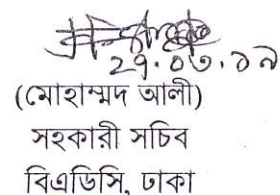 ২৭.০৩.১৯
(মোহাম্মদ আলী)
সহকারী সচিব
বিএডিসি, ঢাকা